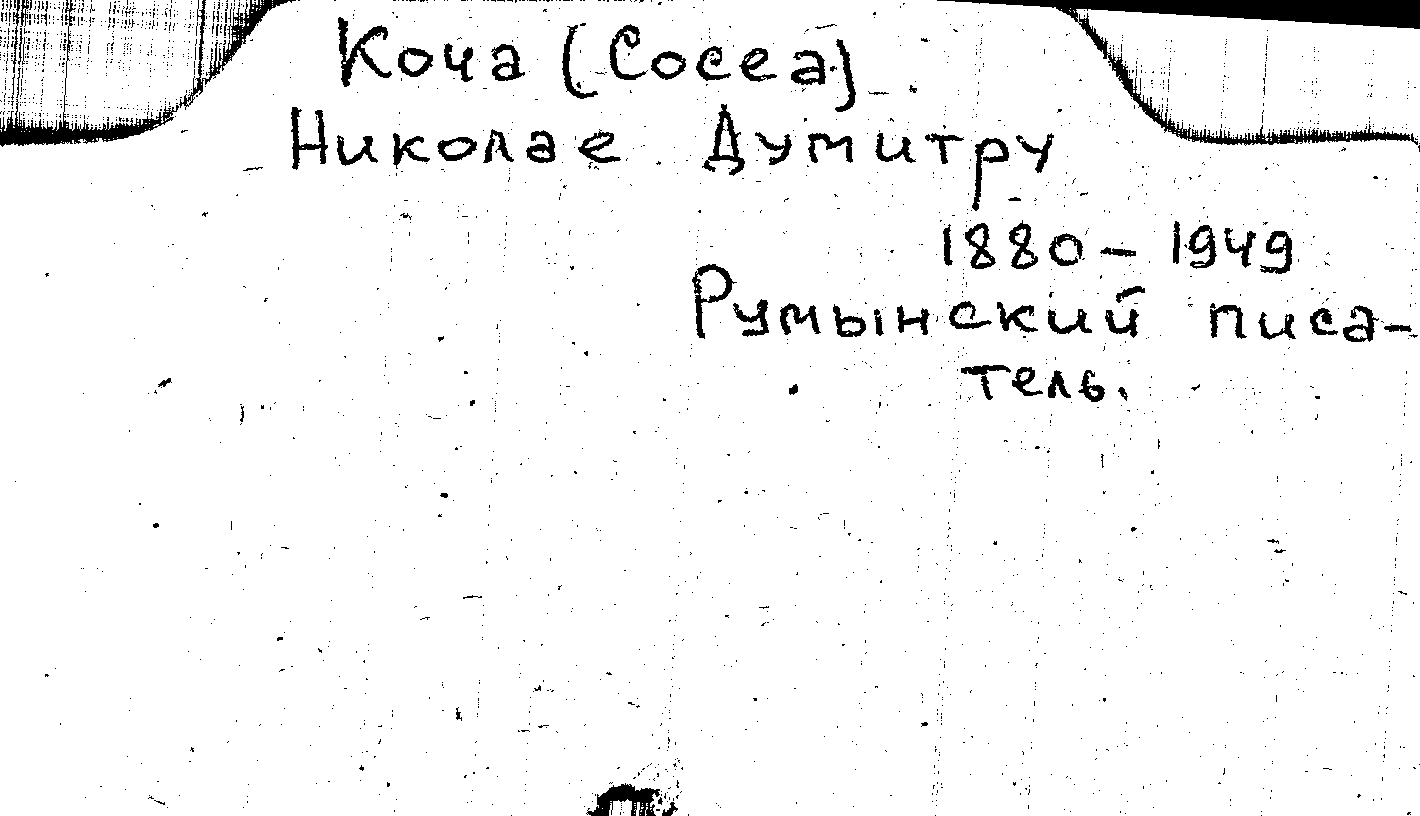 Коча (Cocea)
Николае Думитру
1880 – 1949
Румынский писа-
тель.